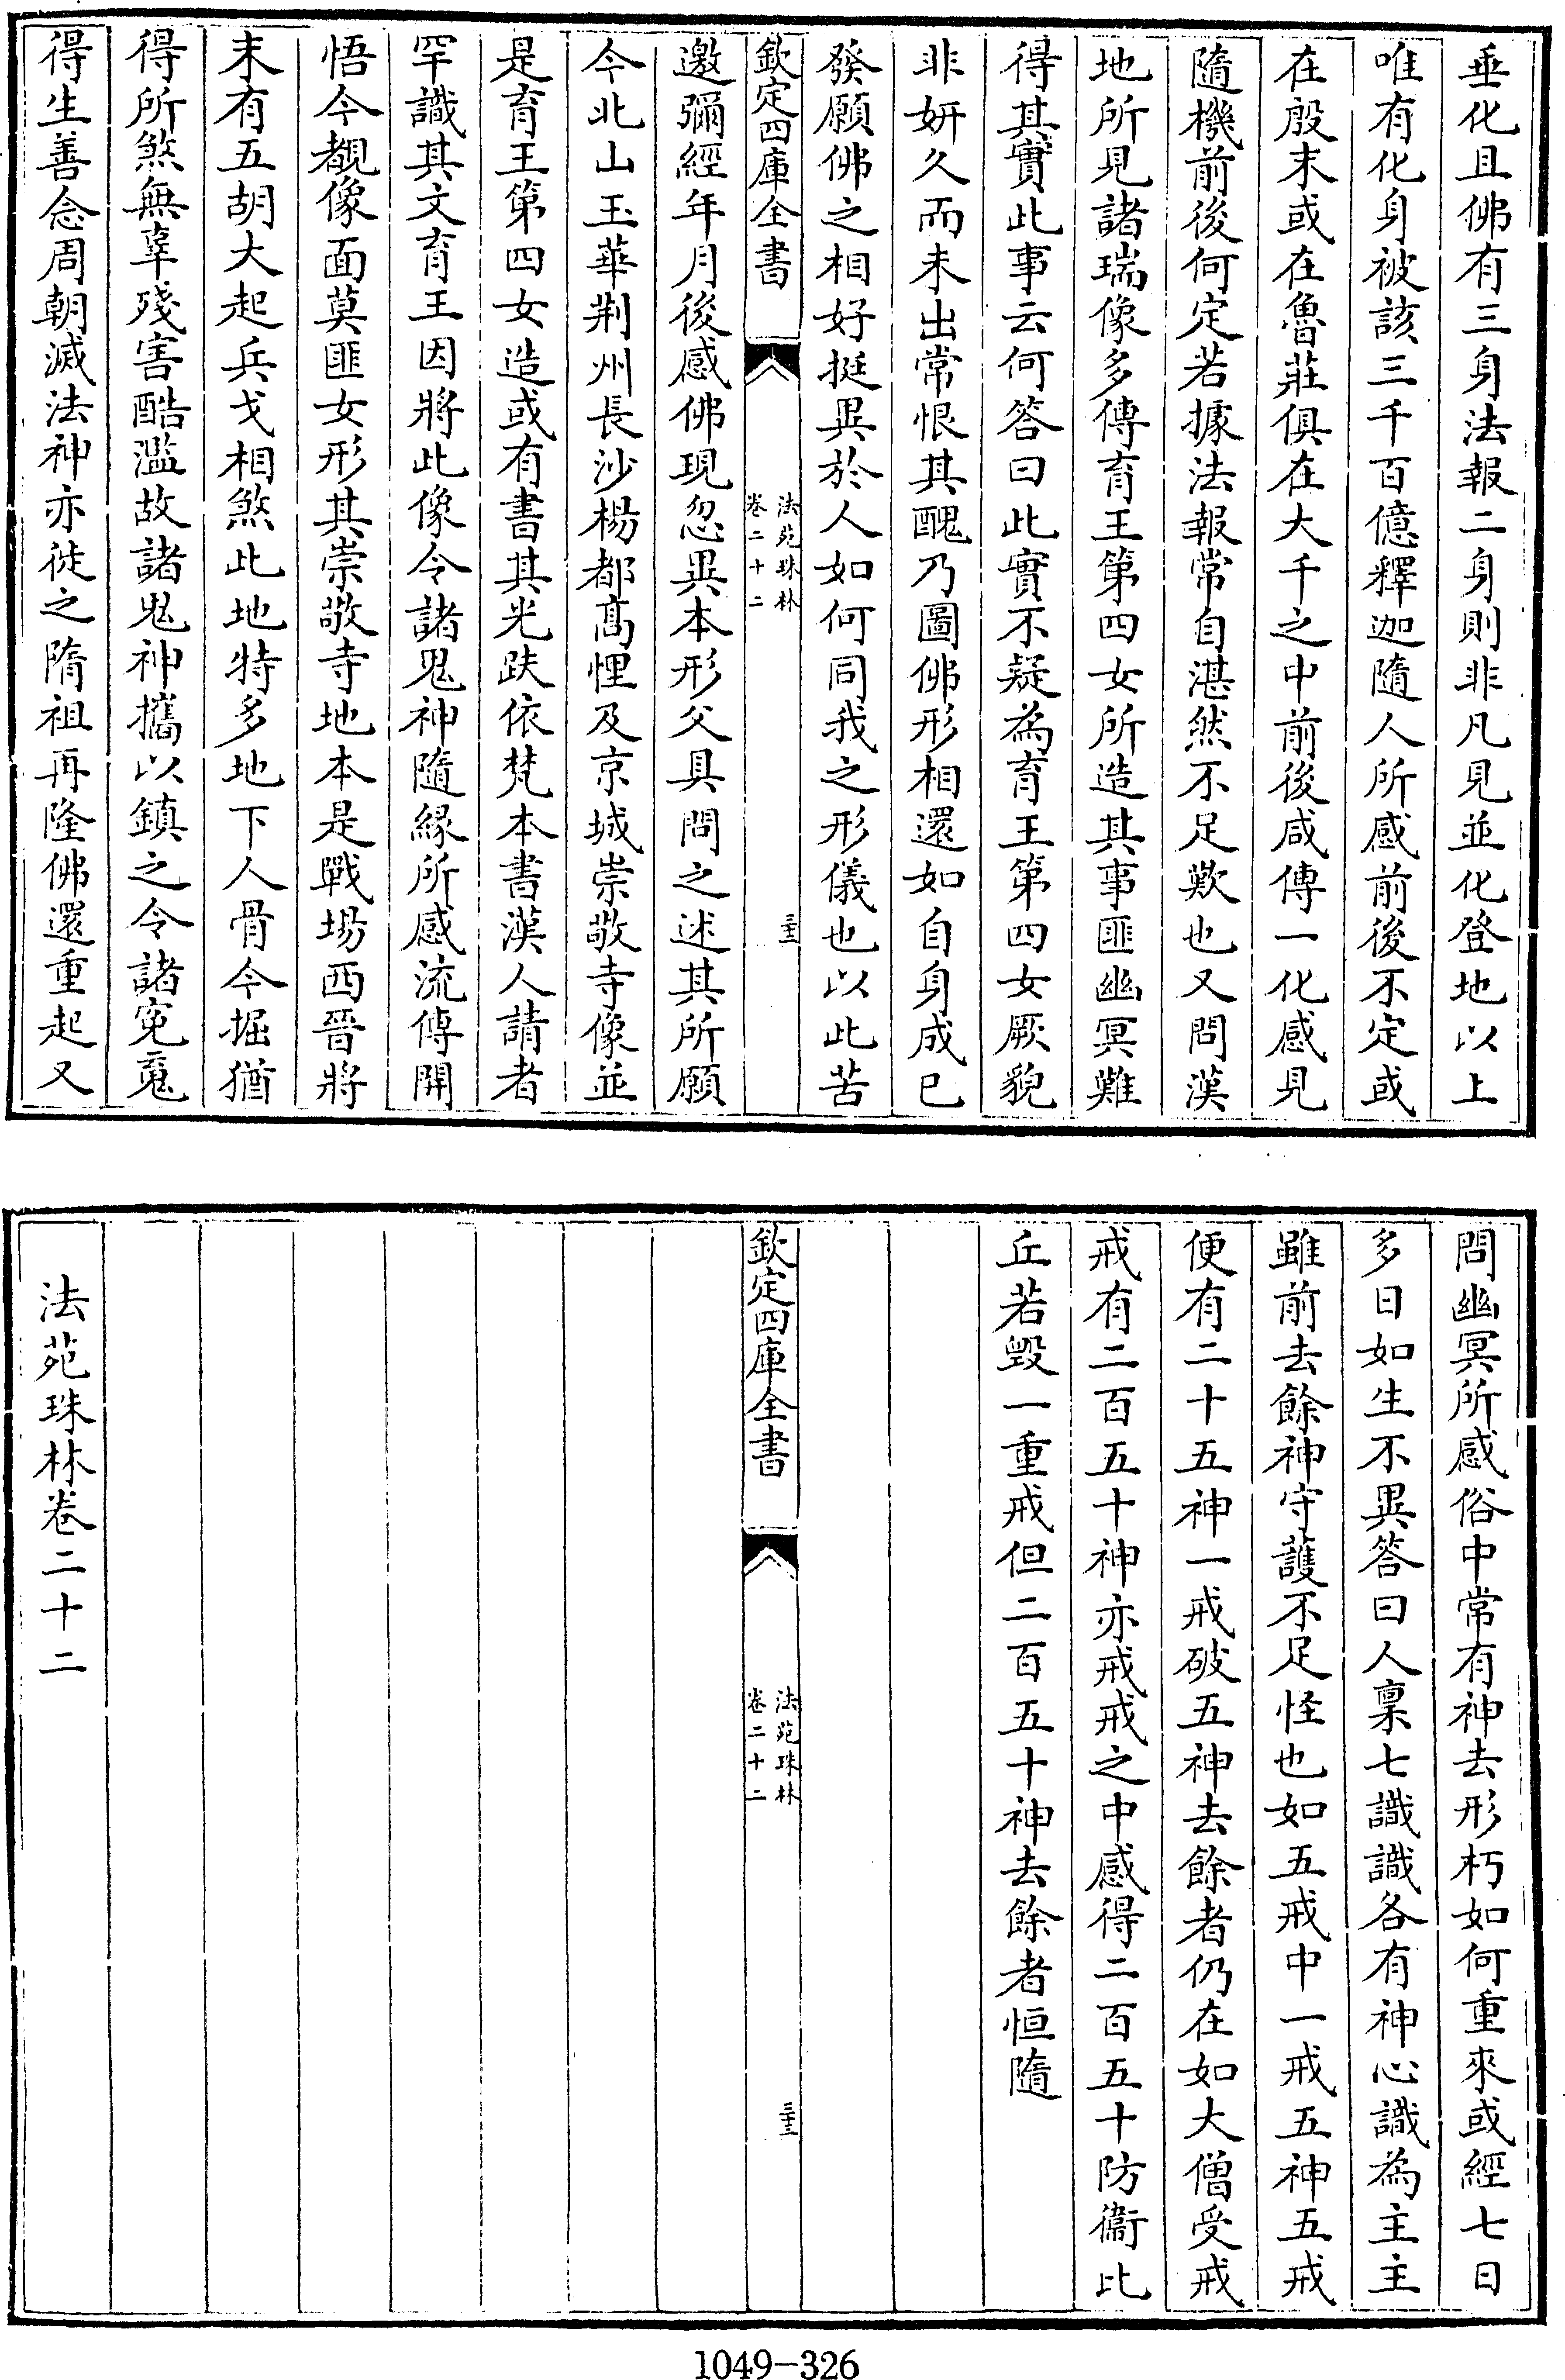 垂化且佛有三身法報二身則非凡見並化登地以上
唯有化身被該三千百億釋迦隨人所感前後不定或
在殷末或在魯莊俱在大千之中前後咸傳一化感見
隨機前後何定若據法報常自湛然不足歎也又問漢
地所見諸瑞像多傳育王第四女所造其事匪幽冥難
得其實此事云何答曰此實不疑為育王第四女厥貌
非妍久而未出常恨其醜乃圖佛形相還如自身成已
發願佛之相好挺異於人如何同我之形儀也以此苦
欽定四庫全書
法苑珠林
卷二十二
三十三
邀彌經年月後感佛現忽異本形父具問之述其所願
今北山玉華荆州長沙楊都高悝及京城崇敬寺像並
是育王第四女造或有書其光趺依梵本書漢人請者
罕識其文育王因將此像令諸鬼神隨緣所感流傳開
悟今覩像面莫匪女形其崇敬寺地本是戰場西晉將
末有五胡大起兵戈相煞此地特多地下人骨今掘猶
得所煞無辜殘害酷濫故諸鬼神攜以鎮之令諸寃䰟
得生善念周朝滅法神亦徙之隋祖再隆佛還重起又
問幽冥所感俗中常有神去形朽如何重來或經七日
多日如生不異答曰人稟七識識各有神心識為主主
雖前去餘神守護不足怪也如五戒中一戒五神五戒
便有二十五神一戒破五神去餘者仍在如大僧受戒
戒有二百五十神亦戒戒之中感得二百五十防衞比
丘若毀一重戒但二百五十神去餘者恒隨
欽定四庫全書
法苑珠林
卷二十二
三十三
法苑珠林卷二十二
1049-326